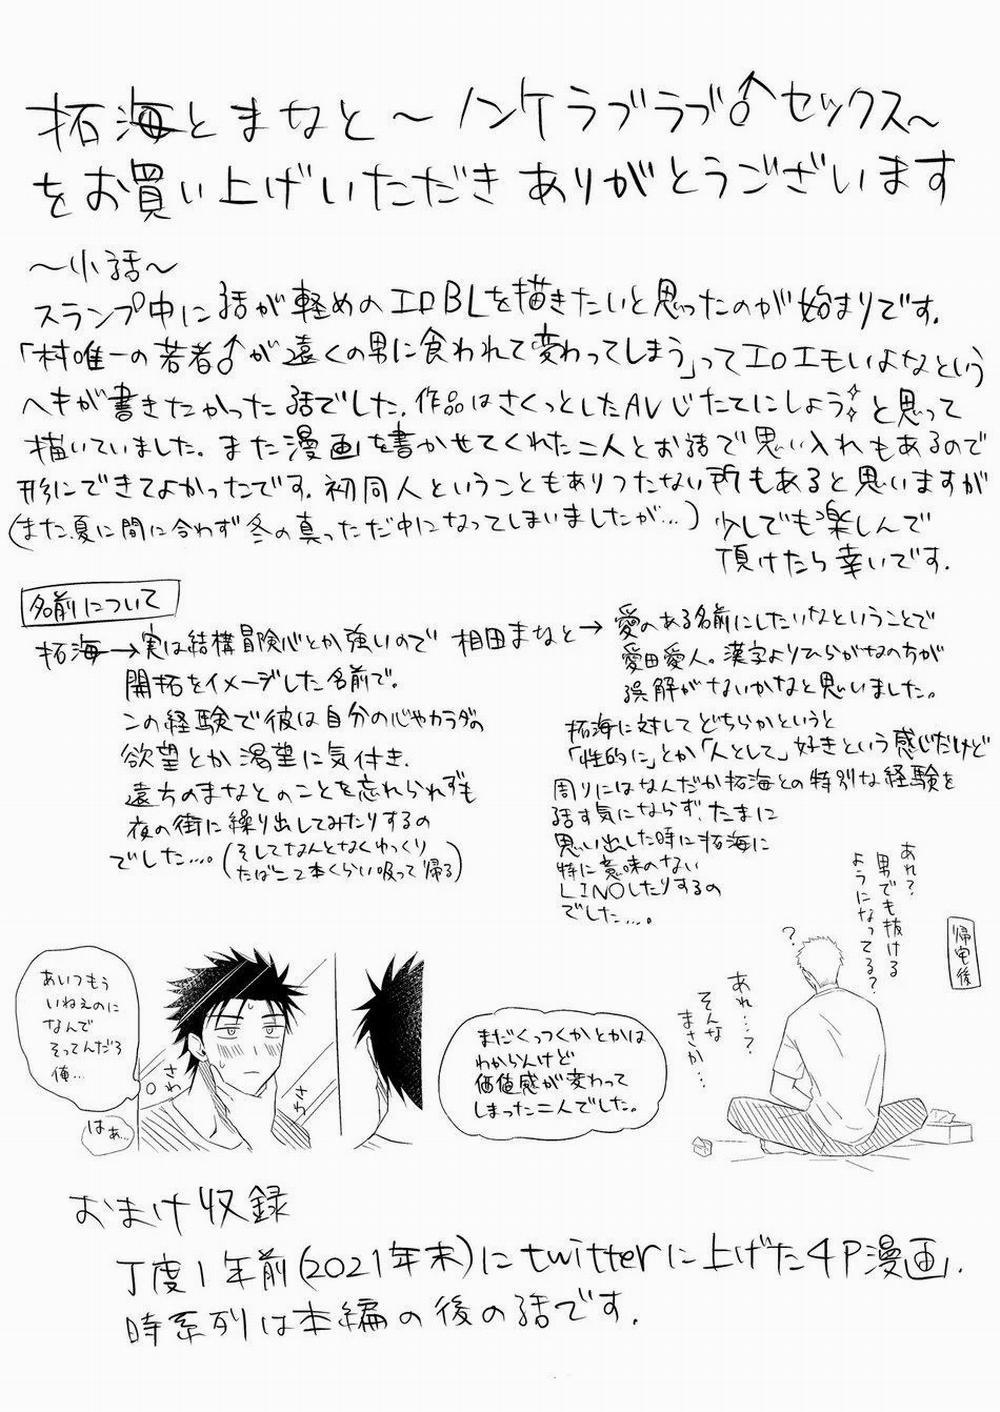 拓海とまなと〜ノンケラブラブ♂セックス〜
をお買い上げいただきありがとうございます
〜小話〜
スランプ中に話が軽めのエロBLを描きたいと思ったのが始まりです.
「村唯一の若者♂が遠くの男に食われて変わってしまう」ってエロエモいよなという
ヘキが書きたかった話でした.作品はさくっとしたAVじたてにしよう✧と思って
描いていました。また漫画を書かせてくれた二人とお話で思い入れもあるので
形にできてよかったです.初同人ということもありつたない所もあると思いますが
(また、夏に間に合わず冬の真っただ中になってしまいましたが…)少しでも楽しんで
頂けたら幸いです.
名前について
拓海→実は結構冒険心とか強いので
開拓をイメージした名前で。
この経験で彼は自分の心やカラダの
欲望とか渇望に気付き、
遠方のまなとのことを忘れられずも
夜の街に繰り出してみたりするの
でした…。(そしてなんとなくゆっくり
たばこ2本くらい吸って帰る)
相田まなと→愛のある名前にしたいなということで
愛田愛人。漢字よりひらがなの方が
誤解がないかなと思いました。
拓海に対してどちらかというと
「性的に」とか「人として」好きという感じだけど
周りにはなんだか拓海との特別な経験を
話す気にならず、たまに
思い出した時に拓海に
特に意味のない
LINOしたりするの
でした…。
あいつもう
いねえのに
なんで
そってんだろ
俺…
はぁ…
さわ
さわ
まだくっつくかとかは
わからんけど
価値感が変わって
しまった二人でした。
帰宅後
あれ?
男でも抜ける
ようになってる?
?
あれ…?
そんな
まさか…
おまけ収録
丁度1年前(2021年末)にtwitterに上げた4P漫画.
時系列は本編の後の話です.